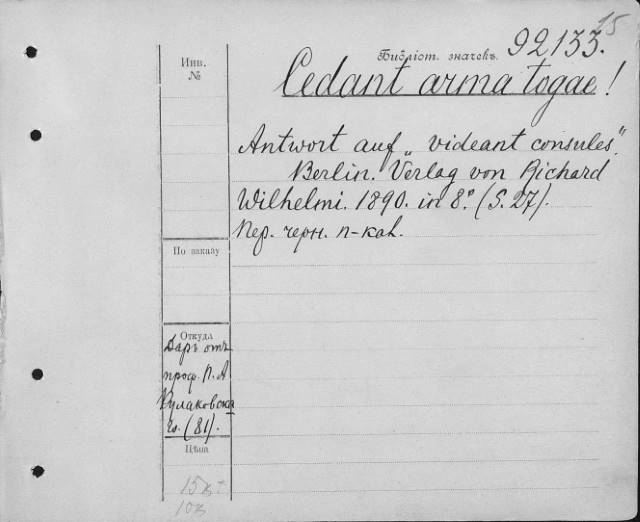 15
Библіот. значекъ. 92133.
Инв.
№
Cedant arma togae!
Antwort auf „videant consules".
Berlin. Verlag von Richard
Wilhelmi. 1890. in 8º (S. 27).
Пер. черн. п-кой.
По заказу
Откуда
Даръ отъ
проф. П. А
Кулаковска
го. (81).
Цѣна
15к
10к